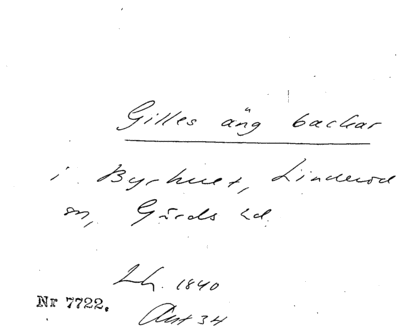 Gilles äng backar
i Byrhult, Linderöd
sn, Gärds hd.
Lh. 1840
Nr 7722.
Akt 34